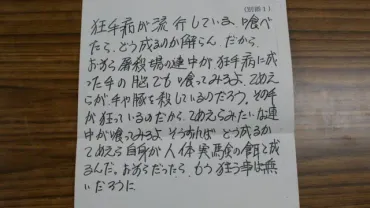 (別冊1)
狂牛病が流行している、喰べ
たら、どう成るのか解らん、だから
おめえら屠殺場の連中が、狂牛病に成
った牛の脳でも喰ってみろよ、てめえ
らが、牛や豚を殺しているのだろう。その牛
が狂っているのだから、てめえらみたいな連
中が喰ってみろよ そうすれば どう成るか
てめえら自身が人体実験の餌て成
るんだ。おめえらだったら、もう狂う事は無
いだろうに